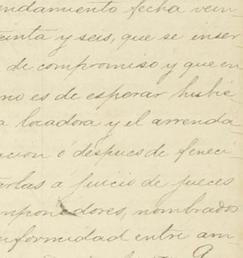 ndamiento fecha vein
einta y seis, que se inser
de compromiso y que en
no es de esperar hubie
a locadora y el arrenda
acion ó despues de feneci
tarlas a juicio de jueces
mponedores, nombrados
nformidad entre am